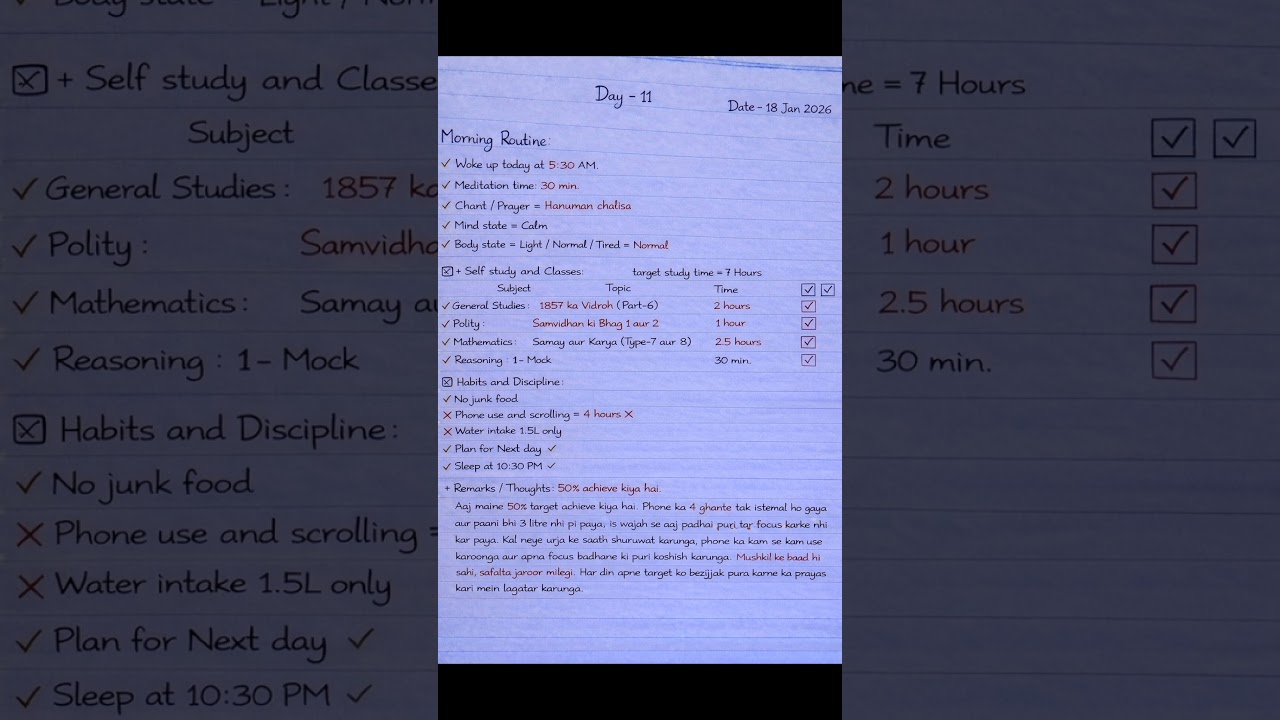 Day - 11
Date - 18 Jan 2026
Morning Routine:
✓ Woke up today at 5:30 AM.
✓ Meditation time: 30 min.
✓ Chant / Prayer = Hanuman chalisa
✓ Mind state = Calm
✓ Body state = Light / Normal / Tired = Normal
☒ + Self study and Classes: target study time = 7 Hours
Subject Topic Time ☑ ☑
✓ General Studies: 1857 ka Vidroh (Part-6) 2 hours ☑
✓ Polity: Samvidhan ki Bhag 1 aur 2 1 hour ☑
✓ Mathematics: Samay aur Karya (Type-7 aur 8) 2.5 hours ☑
✓ Reasoning: 1- Mock 30 min. ☑
☒ Habits and Discipline:
✓ No junk food
✗ Phone use and scrolling = 4 hours ✗
✗ Water intake 1.5L only
✓ Plan for Next day ✓
✓ Sleep at 10:30 PM ✓
+ Remarks / Thoughts: 50% achieve kiya hai.
Aaj maine 50% target achieve kiya hai. Phone ka 4 ghante tak istemal ho gaya
aur paani bhi 3 litre nhi pi paya, is wajah se aaj padhai puri tar focus karke nhi
kar paya. Kal neye urja ke saath shuruwat karunga, phone ka kam se kam use
karoonga aur apna focus badhane ki puri koshish karunga. Mushkil ke baad hi
sahi, safalta jaroor milegi. Har din apne target ko bezijjak pura karne ka prayas
kari mein lagatar karunga.